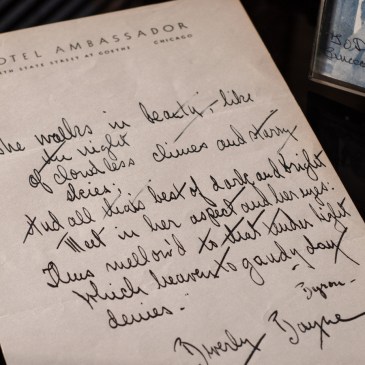 HOTEL AMBASSADOR
NORTH STATE STREET AT GOETHE CHICAGO
She walks in beauty, like
the night
of cloudless climes and starry
skies;
And all thats best of dark and bright
Meet in her aspect and her eyes:
Thus mellow'd to that tender light
Which heaven to gaudy day
denies."
- Byron -
Beverly Bayne